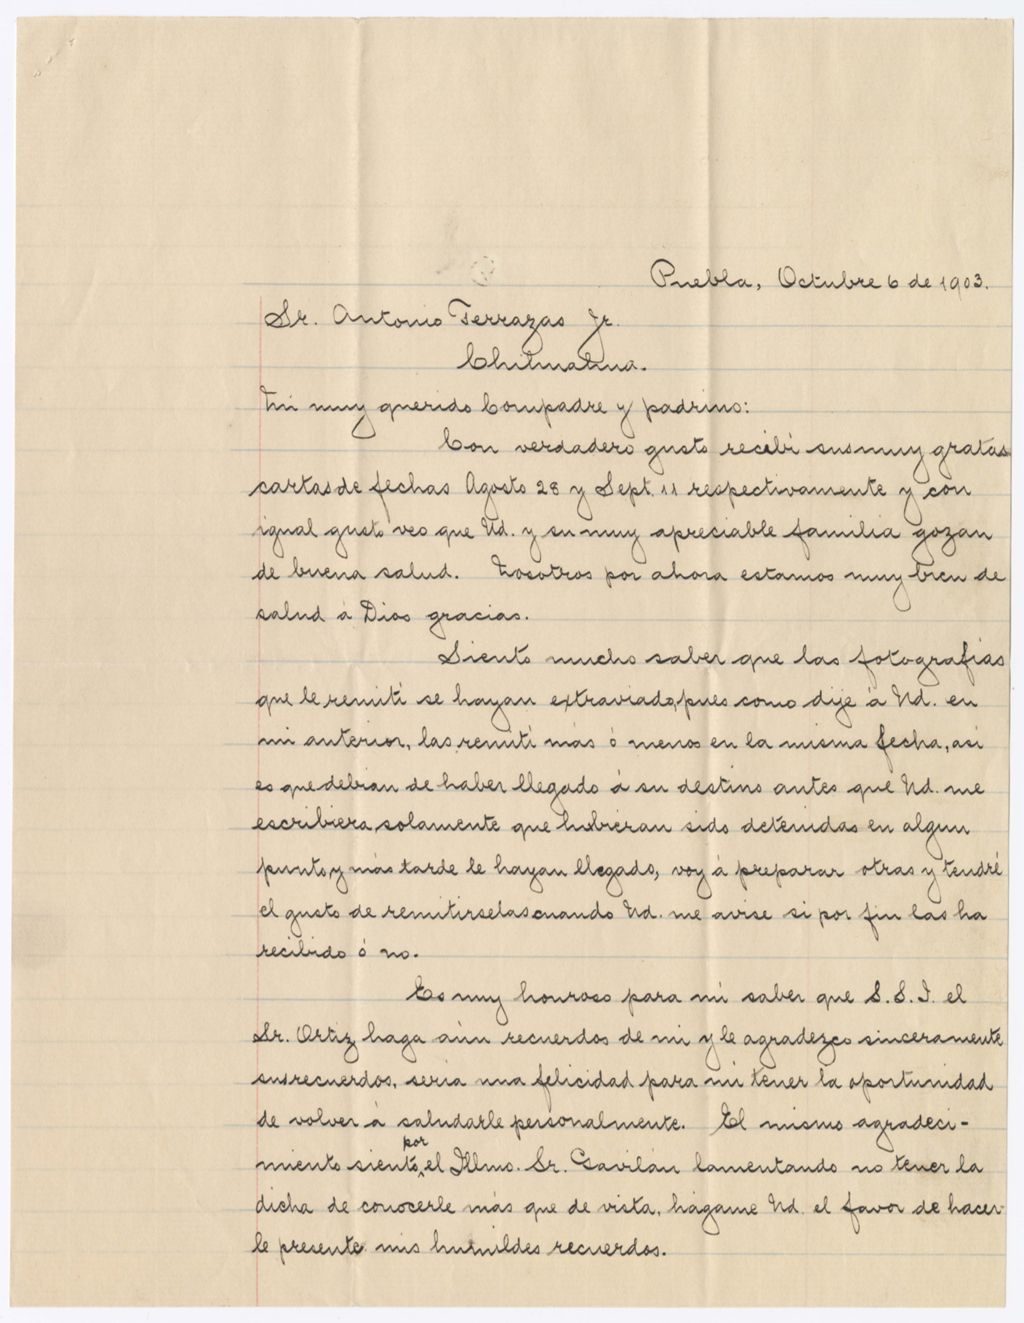 Puebla, Octubre 6 de 1903.
Sr. Antonio Terrazas Jr.
Chihuahua.
Mi muy querido Compadre y padrino:
Con verdadero gusto recibí sus muy gratas
cartas de fechas Agosto 28 y Sept. 11 respectivamente y con
igual gusto veo que Ud. y su muy apreciable familia gozan
de buena salud. Nosotros por ahora estamos muy bien de
salud á Dios gracias.
Siento mucho saber que las fotografías
que le remití se hayan extraviado, pues como dije á Ud. en
mi anterior, las remití más ó menos en la misma fecha, así
es que debían de haber llegado á su destino antes que Ud. me
escribiera, solamente que hubieran sido detenidas en algun
punto y más tarde le hayan llegado, voy á preparar otras y tendré
el gusto de remitirselas cuando Ud. me avise si por fin las ha
recibido ó no.
Es muy honroso para mí saber que S.S.I. el
Sr. Ortiz haga aún recuerdos de mi y le agradezco sinceramente
sus recuerdos, seria una felicidad para mí tener la oportunidad
de volver á saludarle personalmente. El mismo agradeci-
miento siento, por el Illmo. Sr. Gavilán lamentando no tener la
dicha de conocerle más que de vista, hágame Ud. el favor de hacer-
le presente mis humildes recuerdos.